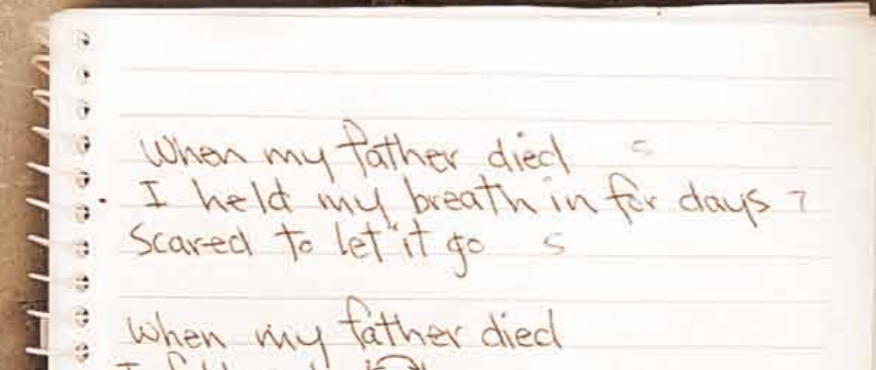 When my father died 5
I held my breath in for days 7
Scared to let it go 5
When my father died
I